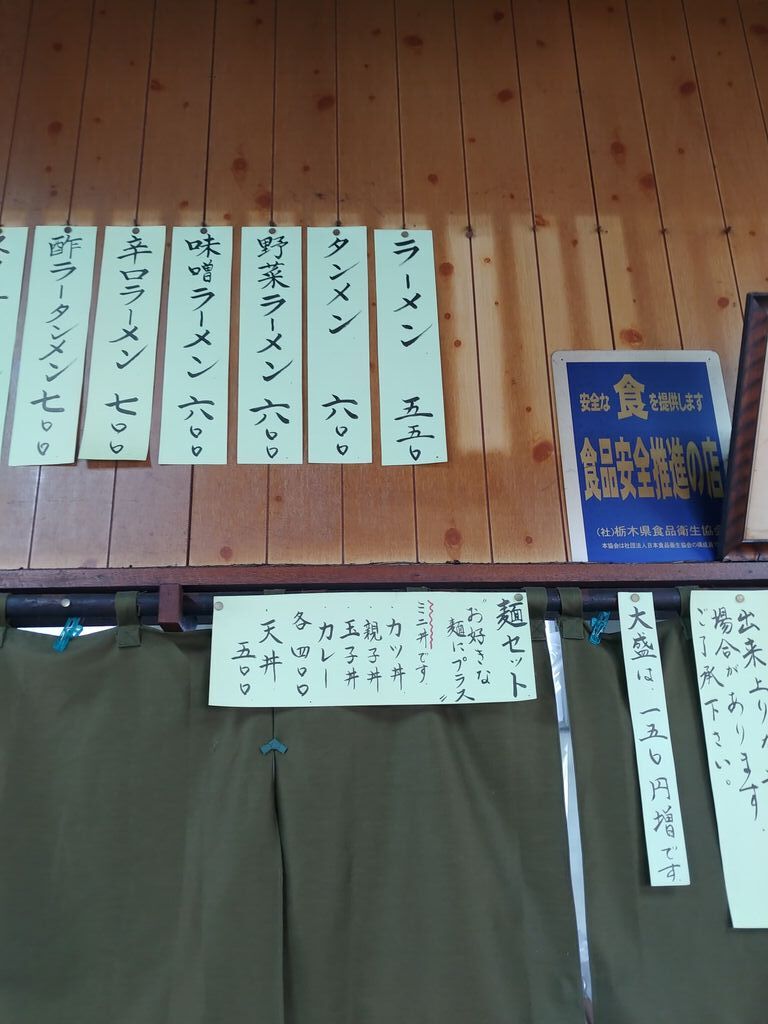 ラーメン 五五〇
タンメン 六〇〇
野菜ラーメン 六〇〇
味噌ラーメン 六〇〇
辛口ラーメン 七〇〇
酢ラータンメン 七〇〇
安全な食を提供します
食品安全推進の店
(社)栃木県食品衛生協会
麺セット
"お好きな
麺にプラス"
ミニ丼です
カツ丼
親子丼
玉子丼
カレー
各四〇〇
天丼
五〇〇
大盛は 一五〇円増です
出来上り
場合があります
ご了承下さい。